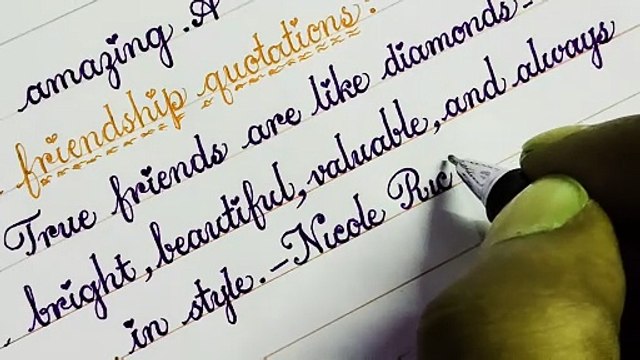 amazing. A
friendship quotations:
True friends are like diamonds-
bright, beautiful, valuable, and always
in style.-Nicole Ric